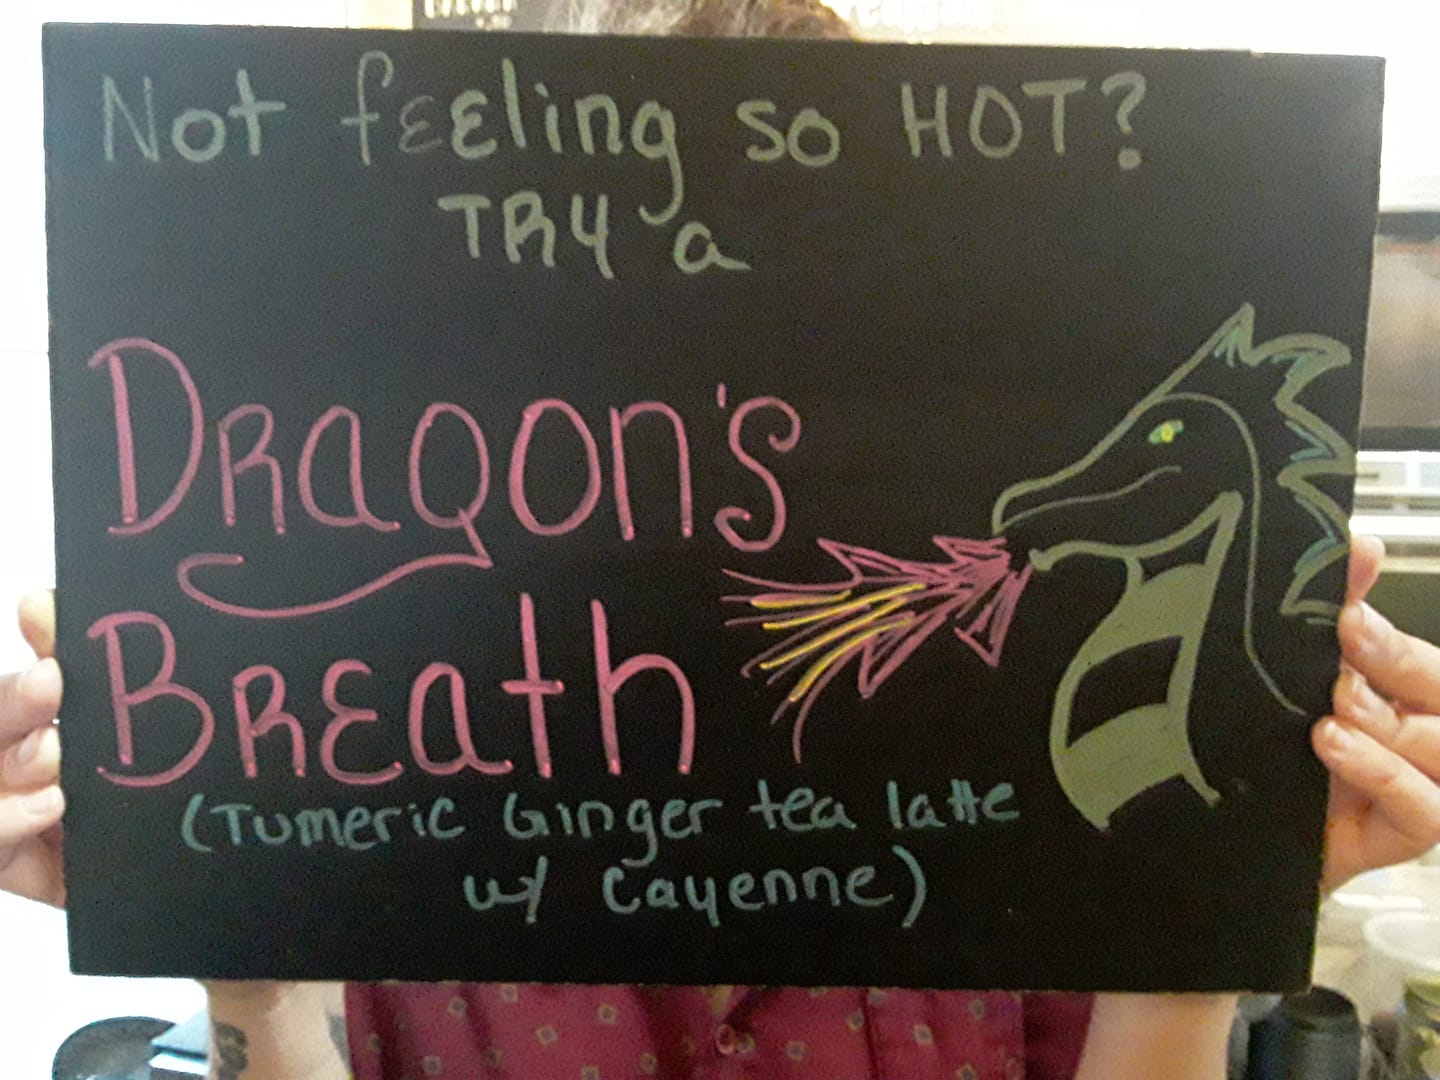 Not feeling so HOT?
TRY a
Dragon's
Breath
(Tumeric Ginger tea latte
w/ Cayenne)